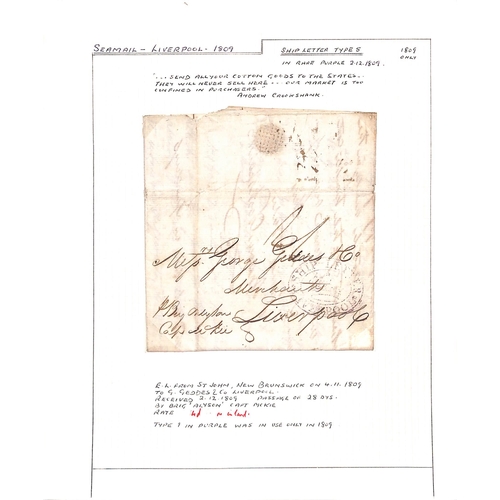 SEAMAIL - LIVERPOOL - 1809
SHIP LETTER TYPE 5
1809
ONLY
IN RARE PURPLE 2.12.1809.
"... SEND ALL YOUR COTTON GOODS TO THE STATES..
THEY WILL NEVER SELL HERE... OUR MARKET IS TOO
CONFINED IN PURCHASERS."
ANDREW CROOKSHANK.
Messrs George Geddes & Co
Merchants
Liverpool
P Brig Alyson
Cap McKie
E.L. FROM ST JOHN, NEW BRUNSWICK ON 4.11.1809
TO G. GEDDES & CO LIVERPOOL.
RECEIVED 2.12.1809 PASSAGE OF 28 DYS.
BY BRIG 'ALYSON' CAPT MCKIE
RATE
TYPE 7 IN PURPLE WAS IN USE ONLY IN 1809